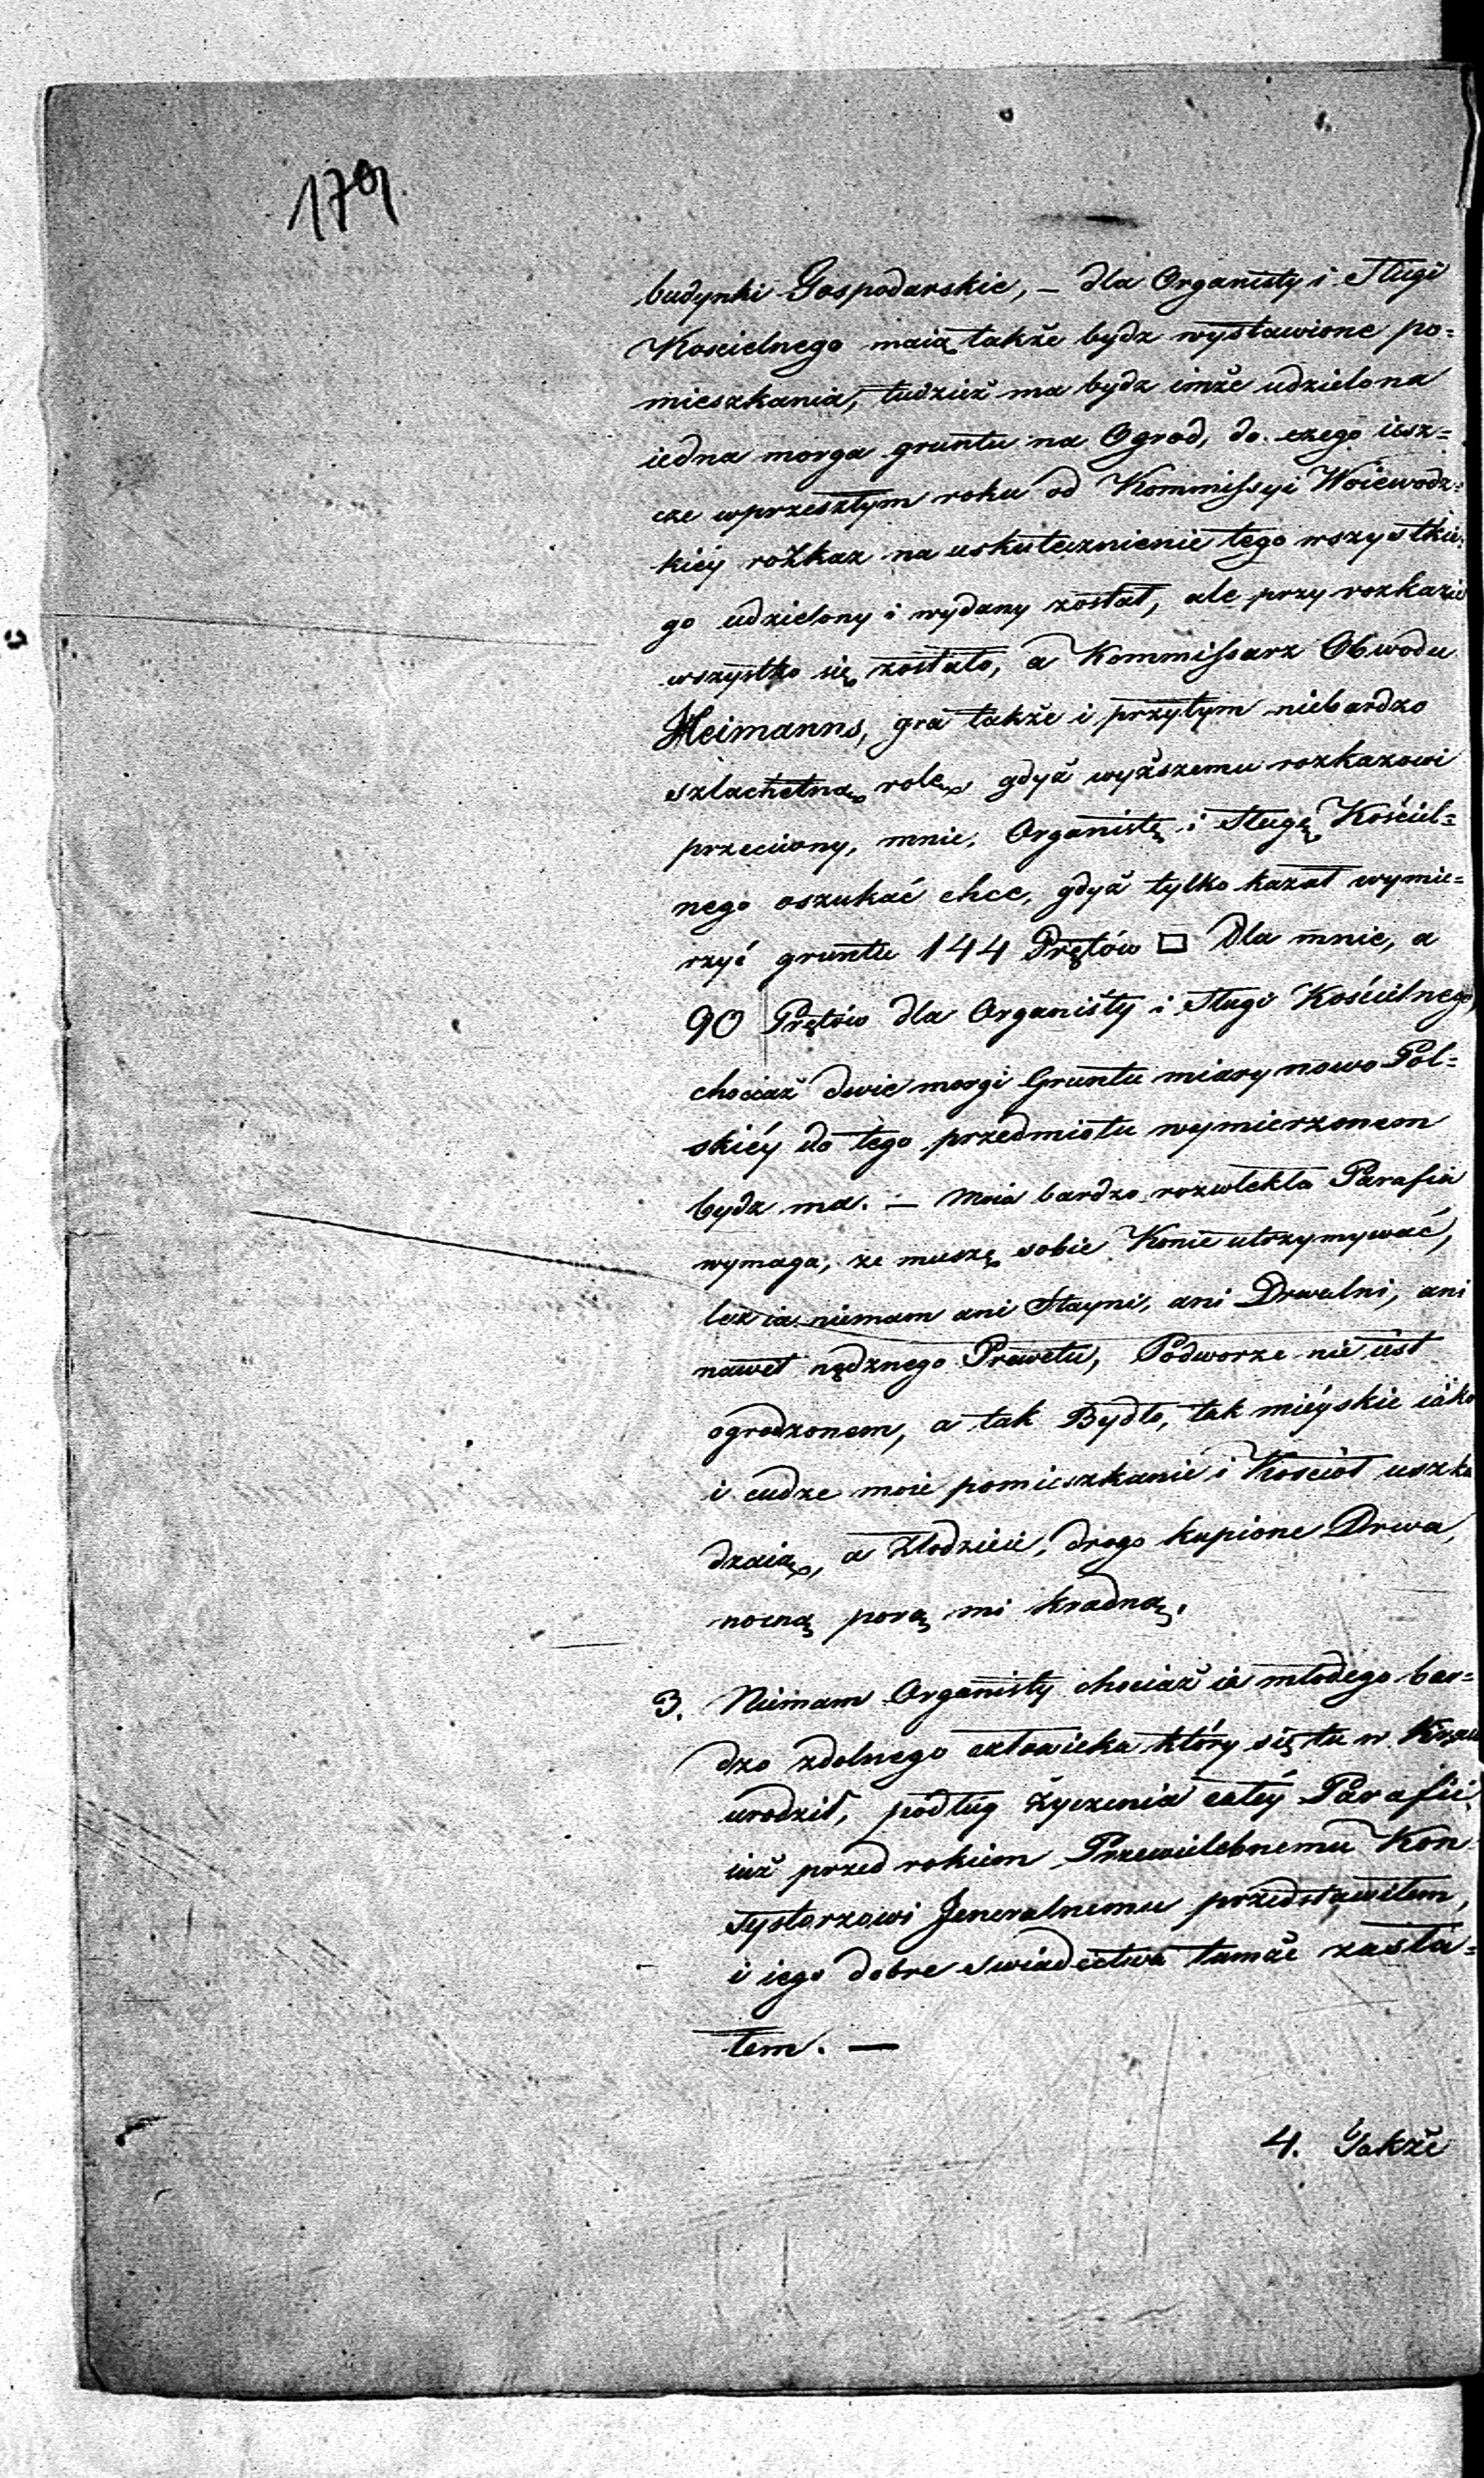 179.
budynki Gospodarskie, – dla Organisty i Sługi
Koscielnego maią także bydz wystawione po=
mieszkania, tudzież ma bydz imże udzielona
iedna morga gruntu na Ogrod, do czego iesz=
cze wprzeszłym roku od Kommissyi Woiewodz=
kiéy rozkaz na uskutecznienie tego wszystkie=
go udzielony i wydany został, ale przy rozkazie
wszystko się zostało, a Kommissarz Obwodu
Heimanns, gra także i przytym niebardzo
szlachetną rolę, gdyż wyższemu rozkazowi
przeciwny, mnie, Organistę i Sługę Kościel=
nego oszukać chce, gdyż tylko kazał wymie=
rzyć gruntu 144 Prętów □ dla mnie, a
90 Prętów dla Organisty i Sługi Kościelnego,
chociaż dwie morgi Gruntu miary nowo Pol=
skiéy do tego przedmiotu wymierzonem
bydz ma. – Moia bardzo rozwlekła Parafia
wymaga, ze muszę sobie Konie utrzymywać,
lecz ia niemam ani Stayni, ani Drwalni, ani
nawet nędznego Prewetu, Podworze nie iest
ogrodzonem, a tak Bydło, tak miéyskie iako
i cudze moie pomieszkanie i Kosciół uszka
dzaią, a Złodzieie, drogo kupione Drwa,
nocną porą mi kradną.
3. Niemam Organisty chociaż ia młodego bar=
dzo zdolnego człowieka który się tu w Kraiu
urodził, podług życzenia całéy Parafii,
iuż przed rokiem Przewielebnemu Kon=
systorzowi Jeneralnemu przedstawiłem,
i iego dobre swiadectwa tamże zasła=
łem. —
4. Także